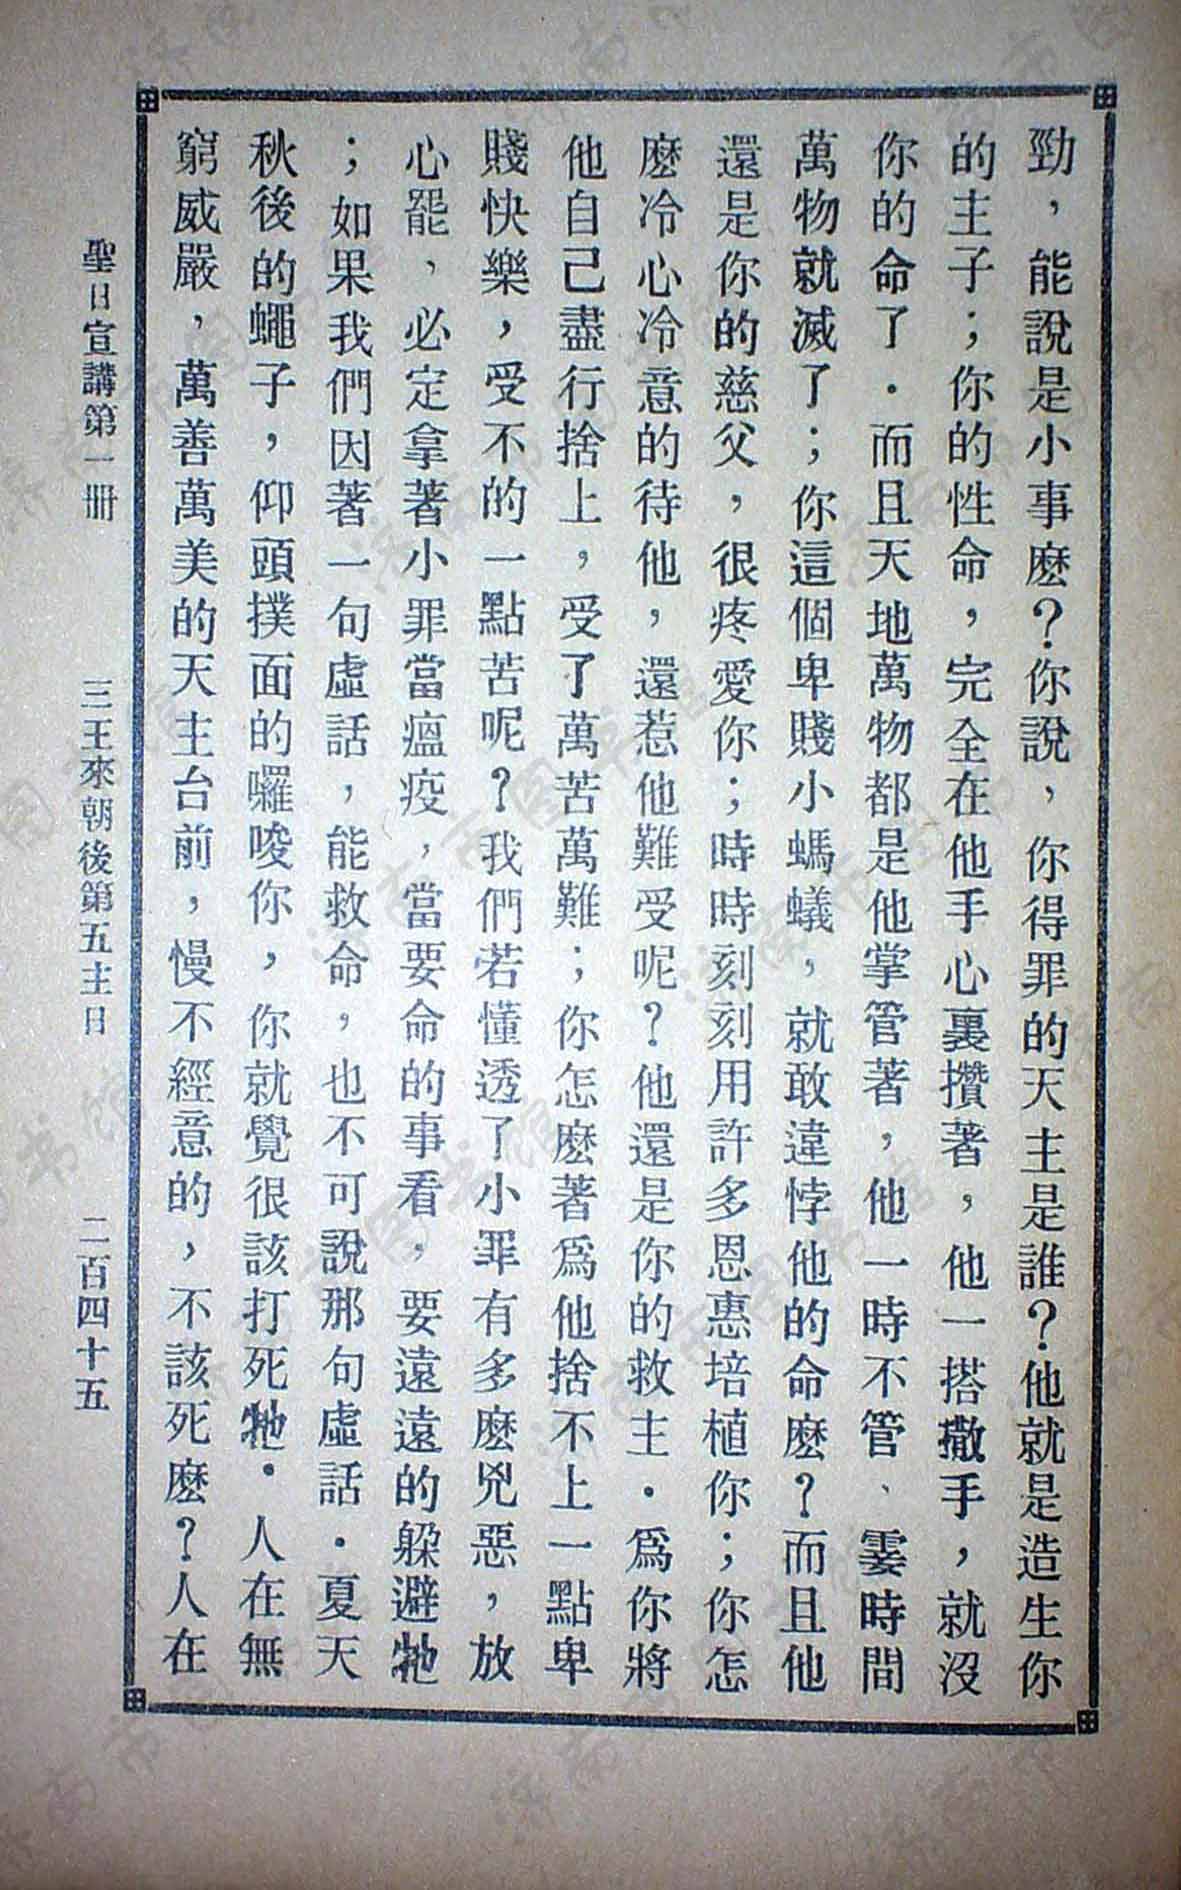 勁，能說是小事麽？你說，你得罪的天主是誰？他就是造生你
的主子；你的性命，完全在他手心裏攢著，他一搭撒手，就沒
你的命了．而且天地萬物都是他掌管著，他一時不管、霎時間
萬物就滅了；你這個卑賤小螞蟻，就敢違悖他的命麽？而且他
還是你的慈父，很疼愛你；時時刻刻用許多恩惠培植你；你怎
麽冷心冷意的待他，還惹他難受呢？他還是你的救主．爲你將
他自己盡行捨上，受了萬苦萬難；你怎麽著爲他捨不上一點卑
賤快樂，受不的一點苦呢？我們若懂透了小罪有多麽兇惡，放
心罷，必定拿著小罪當瘟疫，當要命的事看，要遠遠的躱避牠
；如果我們因著一句虛話，能救命，也不可說那句虛話．夏天
秋後的蠅子，仰頭撲面的囉唆你，你就覺很該打死牠．人在無
窮威嚴，萬善萬美的天主台前，慢不經意的，不該死麽？人在
聖日宣講第一冊　三王來朝後第五主日　二百四十五
济南市图书馆